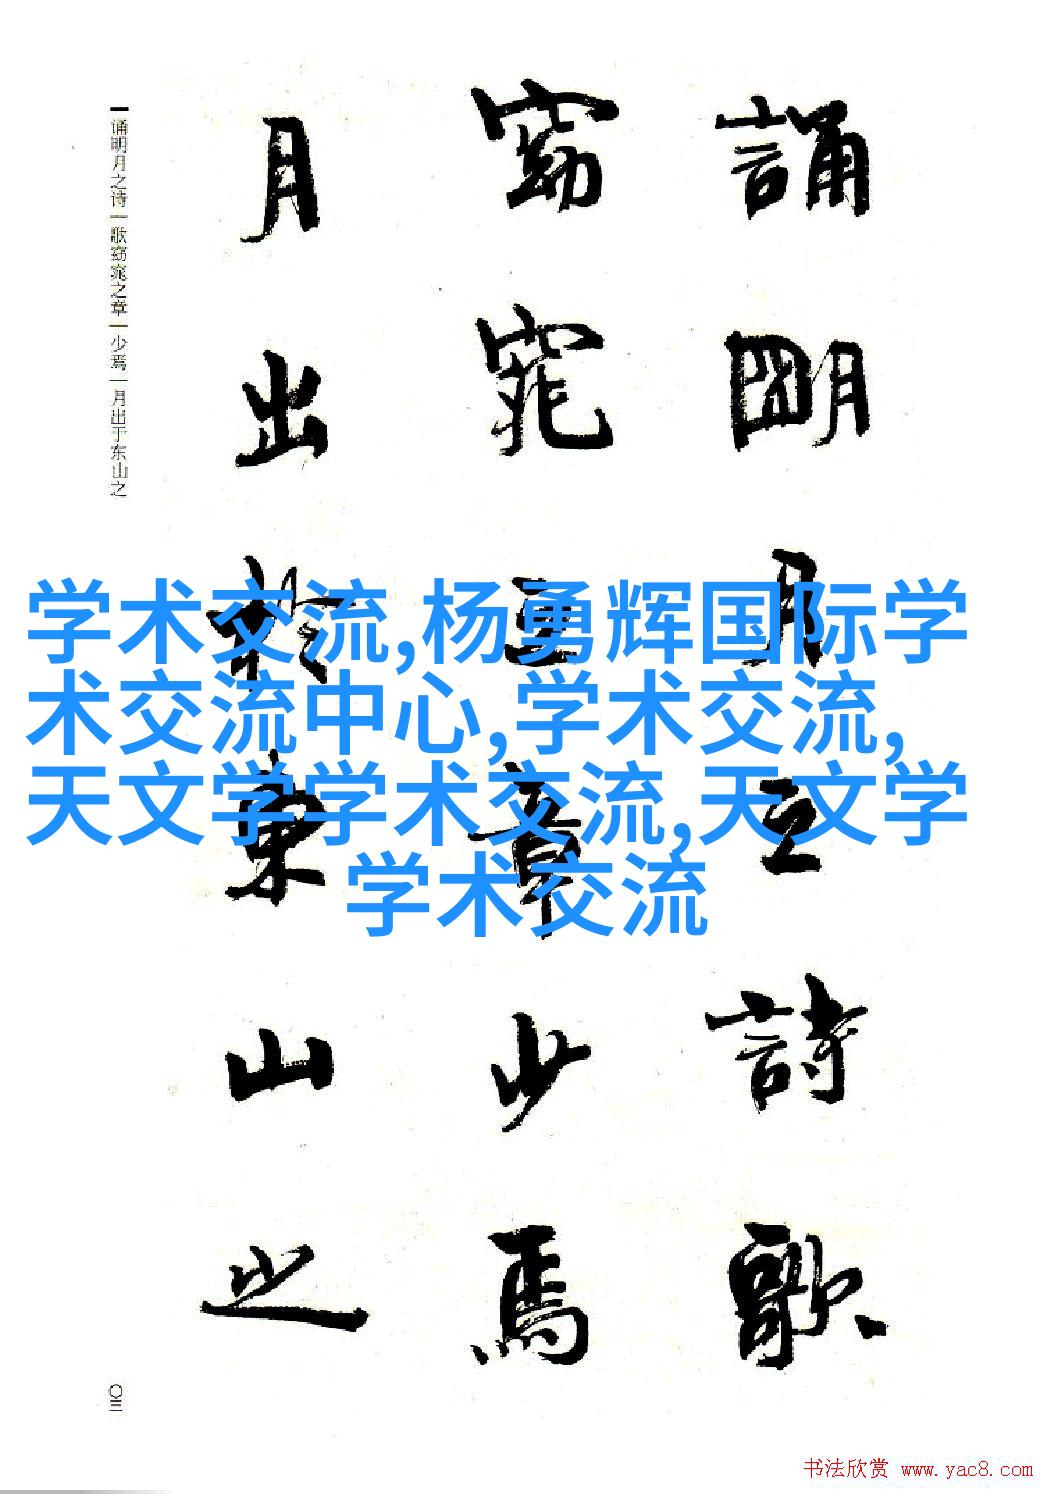 诵明月之诗|歌窈窕之章|少焉|月出于东山之
誦明月之詩歌
窈窕之章少焉
月出於東山之
学术交流,杨勇辉国际学
术交流中心,学术交流,
天文学学术交流,天文学
学术交流
〇三
书法欣赏 www.yac8.com